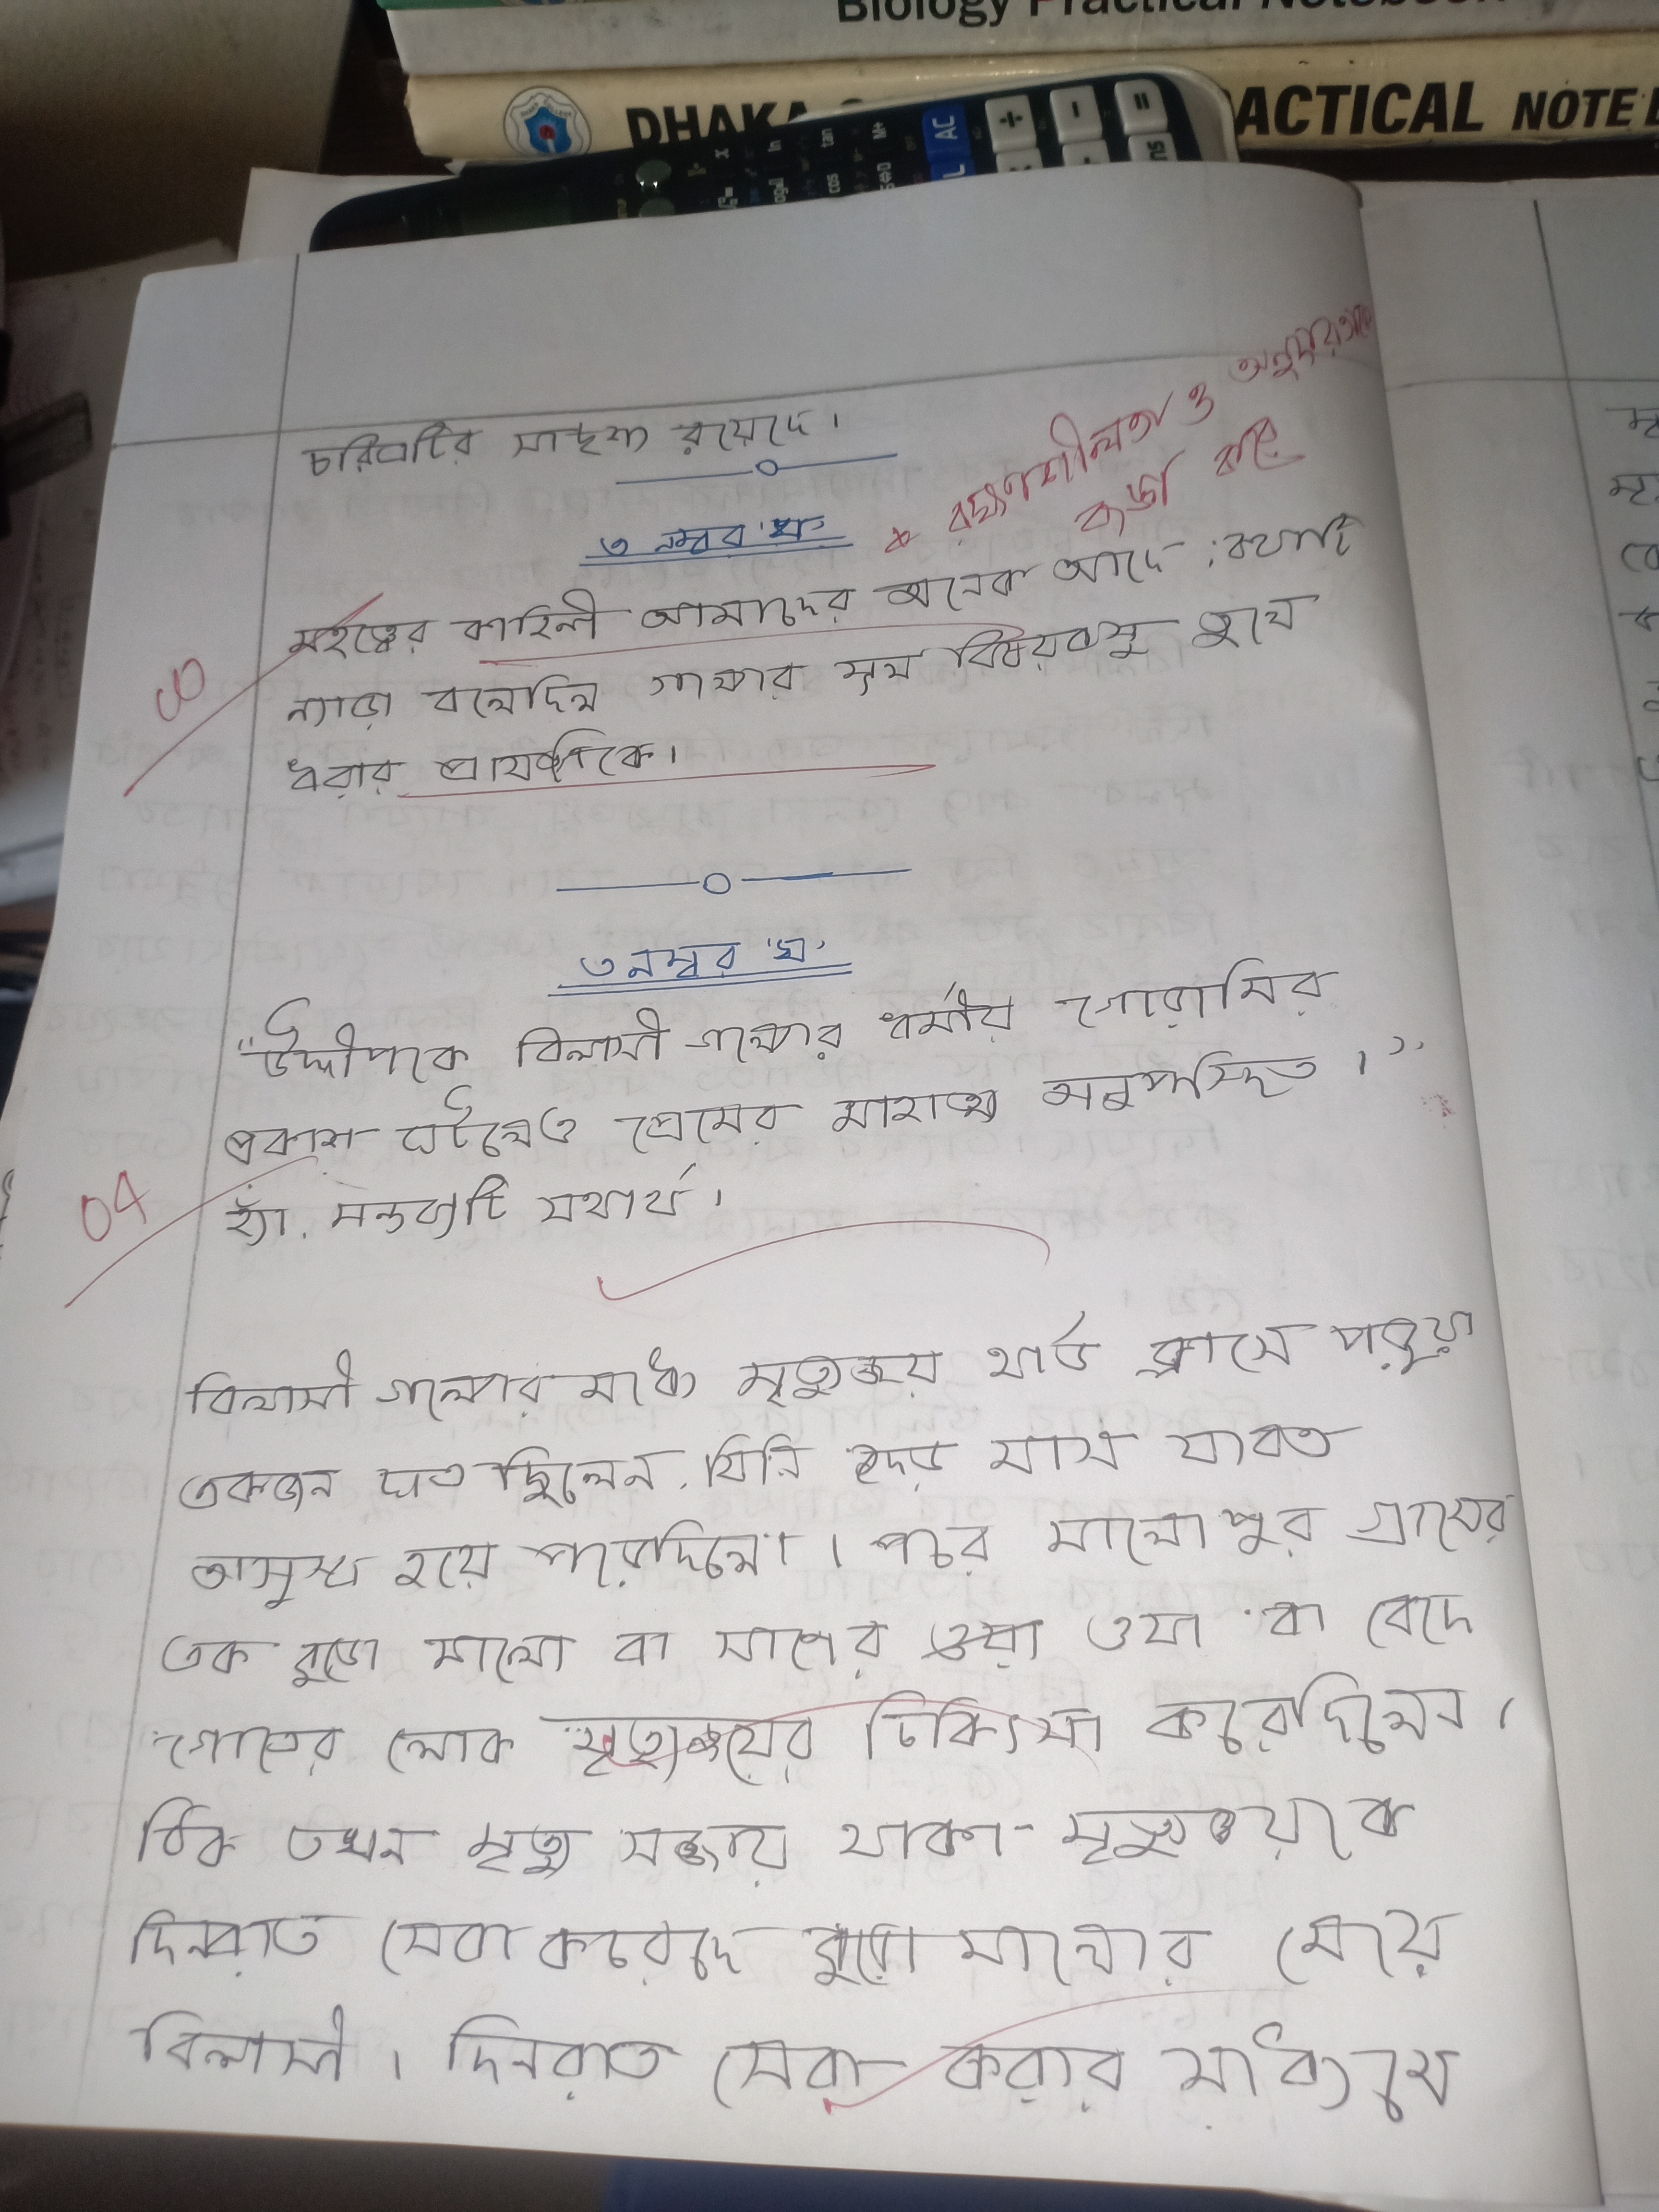 Biology Practical Notebook
DHAKA ACTICAL NOTE
AC
চরিত্রটির সাদৃশ্য রয়েছে।
* রক্ষণশীলতা ও অনুদারতাকে
কটাক্ষ করে
৩ নম্বর 'খ'
মহত্ত্বের কাহিনী আমাদের অনেক আছে; কথাটি
ন্যাড়া বলেছিল গল্পের মূল বিষয়বস্তু তুলে
ধরার প্রাসঙ্গিকে।
00
৩ নম্বর 'ঘ'
"উদ্দীপকে বিলাসী গল্পের ধর্মীয় গোরামির
প্রকাশ ঘটলেও প্রেমের মাহাত্ম্য অনুপস্থিত।"
04
হ্যাঁ, মন্তব্যটি যথার্থ।
বিলাসী গল্পের মধ্যে মৃত্যুঞ্জয় থার্ড ক্লাসে পরুয়া
একজন ছাত্র ছিলেন, যিনি দেড় মাস যাবত
অসুস্থ হয়ে পড়েছিলো। পরে মালোপুর গ্রামের
এক বুড়ো মালো বা সাপের ওঝা বা বেদে
গোত্রের লোক মৃত্যুঞ্জয়ের চিকিৎসা করেছিলেন।
ঠিক তখন মৃত্যু সজ্জায় থাকা মৃত্যুঞ্জয়কে
দিনরাত সেবা করেছে বুড়ো মালোর মেয়ে
বিলাসী। দিনরাত সেবা করার মাধ্যমে